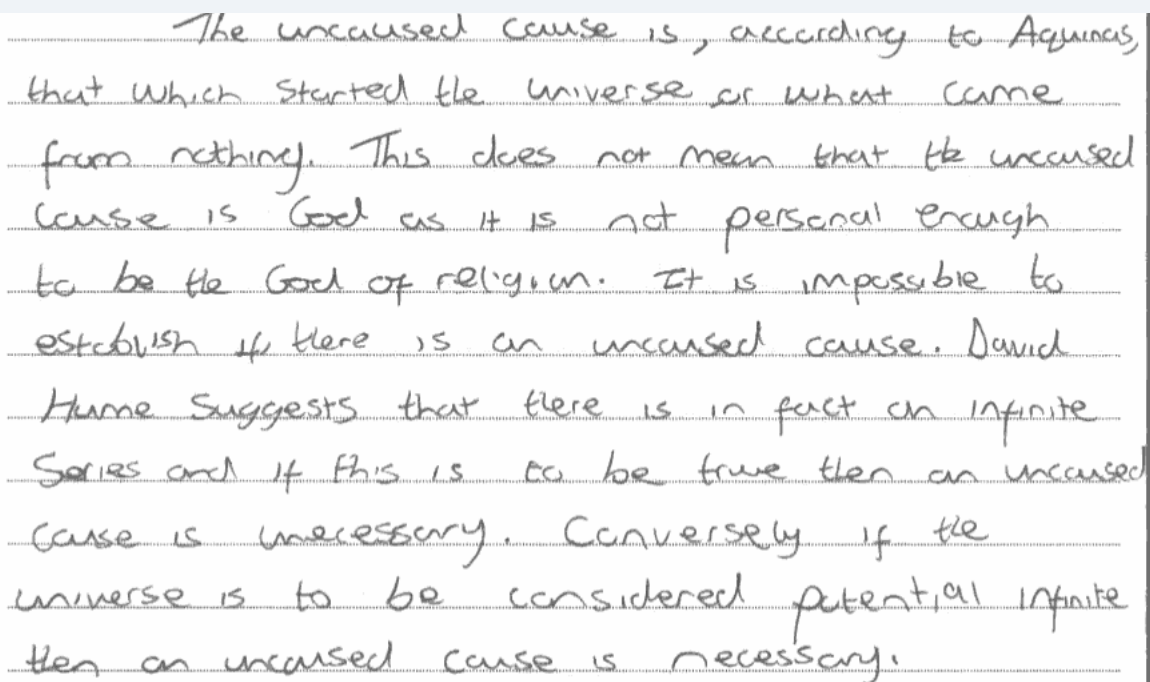 The uncaused cause is, according to Aquinas,
that which started the universe or what came
from nothing. This does not mean that the uncaused
cause is God as it is not personal enough
to be the God of religion. It is impossible to
establish if there is an uncaused cause. David
Hume suggests that there is in fact an infinite
series and if this is to be true then an uncaused
cause is unecessary. Conversely if the
universe is to be considered potential infinite
then an uncaused cause is necessary.